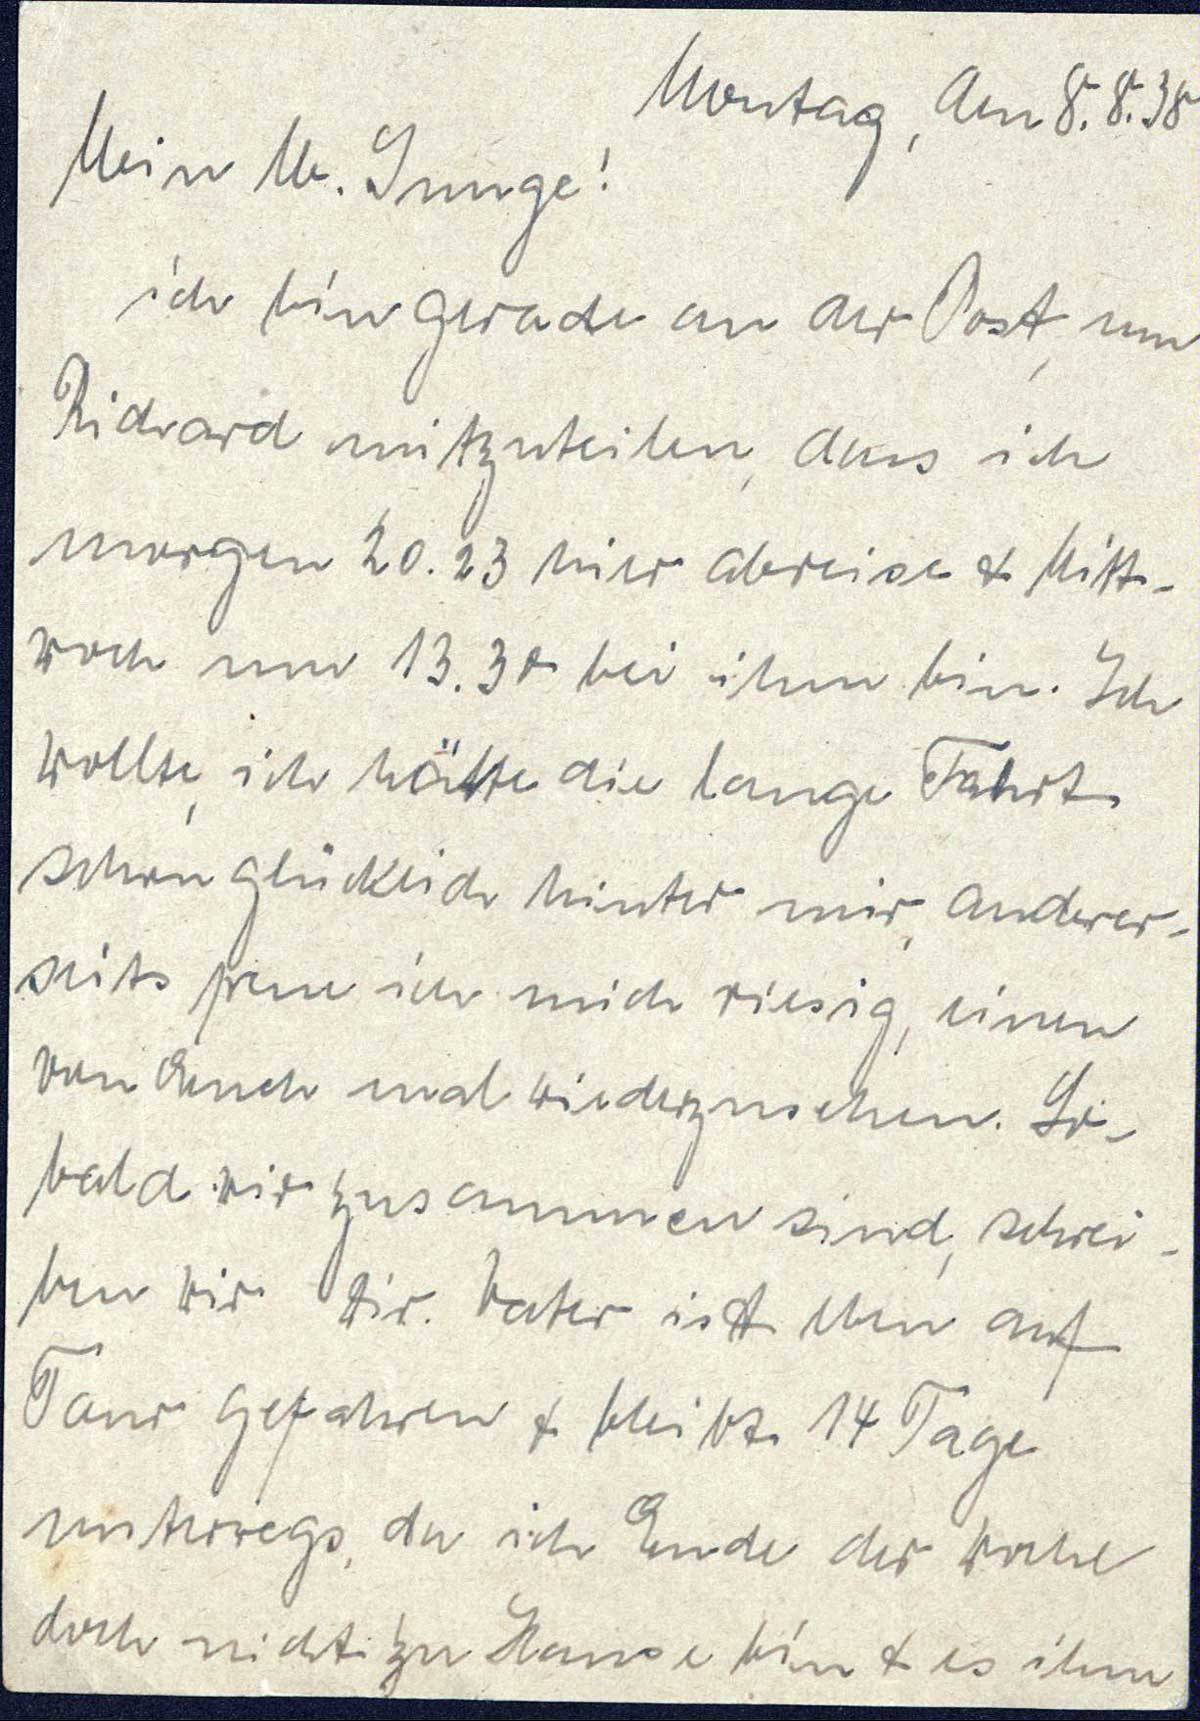 Montag, den 8.8.38
Mein lb. Junge!
ich bin gerade an der Post, um
Richard mitzuteilen, dass ich
morgen 20.23 hier abreise & Mitt-
woch um 13.30 bei ihm bin. Ich
wollte, ich hätte die lange Fahrt
schon glücklich hinter mir, anderer-
seits freue ich mich riesig, einen
von Euch mal wiederzusehen. So-
bald wir zusammen sind, schrei-
ben wir Dir. Vater ist eben auf
Tour gefahren & bleibt 14 Tage
unterwegs, da ich Ende der Woche
doch nicht zu Hause bin & es ihm